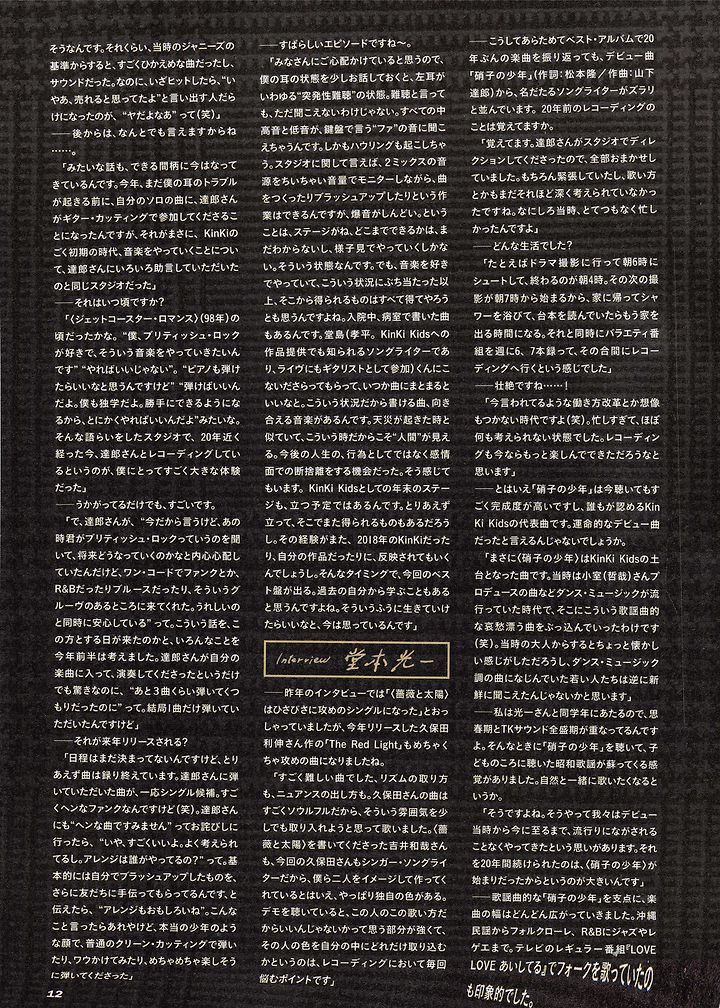 そうなんです。それくらい、当時のジャニーズの
基準からすると、すごくひかえめな曲だったし、
サウンドだった。なのに、いざヒットしたら、“い
やあ、売れると思ってたよ”と言い出す人だら
けになったのが、“ヤだよなあ”って(笑)」
──後からは、なんとでも言えますからね
……。
「みたいな話も、できる間柄に今はなって
きているんです。今年、まだ僕の耳のトラブル
が起きる前に、自分のソロの曲に、達郎さん
がギター・カッティングで参加してくださるこ
とになったんですが、それがまさに、KinKiの
ごく初期の時代、音楽をやっていくことについ
て、達郎さんにいろいろ助言していただいた
のと同じスタジオだった」
──それはいつ頃ですか?
「〈ジェットコースター・ロマンス〉(98年)の
頃だったかな。“僕、ブリティッシュ・ロック
が好きで、そういう音楽をやっていきたいん
です”“やればいいじゃない”。“ピアノも弾
けたらいいなと思うんですけど”“弾けばいいん
だよ。僕も独学だよ。勝手にできるようにな
るから、とにかくやればいいんだよ”みたいな。
そんな語らいをしたスタジオで、20年近く
経った今、達郎さんとレコーディングしてい
るというのが、僕にとってすごく大きな体験
だった」
──うかがってるだけでも、すごいです。
「で、達郎さんが、“今だから言うけど、あの
時君がブリティッシュ・ロックっていうのを聞
いて、将来どうなっていくのかなと内心心配し
ていたんだけど、ワン・コードでファンクとか、
R&Bだったりブルースだったり、そういうグ
ルーヴのあるところに来てくれた。うれしいの
と同時に安心している”って。こういう話を、こ
の方とする日が来たのかと、いろんなことを
今年前半は考えました。達郎さんが自分の
楽曲に入って、演奏してくださったというだけ
でも驚きなのに、“あと3曲くらい弾いてくつ
もりだったのに”って。結局1曲だけ弾いてい
ただいたんですけど」
──それが来年リリースされる?
「日程はまだ決まってないんですけど、とり
あえず曲は録り終えています。達郎さんに弾
いていただいた曲が、一応シングル候補。すご
くヘンなファンクなんですけど(笑)。達郎さん
にも“ヘンな曲ですみません”ってお詫びしに
行ったら、“いや、すごくいいよ。よく考えられ
てるし。アレンジは誰がやってるの?”って。基
本的には自分でブラッシュアップしたものを、
さらに友だちに手伝ってもらってるんです、と
伝えたら、“アレンジもおもしろいね”。こんな
こと言ったらあれやけど、本当の少年のよう
な顔で、普通のクリーン・カッティングで弾い
たり、ワウかけてみたり、めちゃめちゃ楽しそう
に弾いてくださった」
──すばらしいエピソードですね〜。
「みなさんにご心配かけていると思うので、
僕の耳の状態を少しお話しておくと、左耳が
いわゆる“突発性難聴”の状態。難聴と言って
も、ただ聞こえないわけじゃない。すべての中
高音と低音が、鍵盤で言う“ファ”の音に聞こ
えちゃうんです。しかもハウリングも起こしちゃ
う。スタジオに関して言えば、2ミックスの音
源をちいちゃい音量でモニターしながら、曲
をつくったりブラッシュアップしたりという作
業はできるんですが、爆音がしんどい。という
ことは、ステージがね、どこまでできるかは、ま
だわからないし、様子見でやっていくしかな
い。そういう状態なんです。でも、音楽を好き
でやっていて、こういう状況にぶち当たった以
上、そこから得られるものはすべて得てやろう
とも思うんですよね。入院中、病室で書いた曲
もあるんです。堂島(孝平。KinKi Kidsへの
作品提供でも知られるソングライターであ
り、ライヴにもギタリストとして参加)くんにこ
ないださらってもらって、いつか曲にまとまると
いいなと。こういう状況だから書ける曲、向き
合える音楽があるんです。天災が起きた時と
似ていて、こういう時だからこそ“人間”が見え
る。今後の人生の、行為としてではなく感情
面での断捨離をする機会だった。そう感じて
もいます。KinKi Kidsとしての年末のステー
ジも、立つ予定ではあるんです。とりあえず
立って、そこでまた得られるものもあるだろう
し。その経験がまた、2018年のKinKiだった
り、自分の作品だったりに、反映されてもいく
んでしょうし。そんなタイミングで、今回のベス
ト盤が出る。過去の自分から学ぶこともある
と思うんですよね。そういうふうに生きていけ
たらいいなと、今は思っているんです」
Interview 堂本光一
──昨年のインタビューでは「〈薔薇と太陽〉
はひさびさに攻めのシングルになった」とおっ
しゃっていましたが、今年リリースした久保田
利伸さん作の「The Red Light」もめちゃく
ちゃ攻めの曲になりましたね。
「すごく難しい曲でした、リズムの取り方
も、ニュアンスの出し方も。久保田さんの曲は
すごくソウルフルだから、そういう雰囲気を少
しでも取り入れようと思って歌いました。〈薔
薇と太陽〉を書いてくださった吉井和哉さん
も、今回の久保田さんもシンガー・ソングライ
ターだから、僕ら二人をイメージして作ってく
れているとはいえ、やっぱり独自の色がある。
デモを聴いていると、この人のこの歌い方だ
からいいんじゃないかって思う部分が強くて、
その人の色を自分の中にどれだけ取り込む
かというのは、レコーディングにおいて毎回
悩むポイントです」
──こうしてあらためてベスト・アルバムで20
年ぶんの楽曲を振り返っても、デビュー曲
「硝子の少年」(作詞:松本隆/作曲:山下
達郎)から、名だたるソングライターがズラリ
と並んでいます。20年前のレコーディングの
ことは覚えてますか。
「覚えてます。達郎さんがスタジオでディレ
クションしてくださったので、全部おまかせし
ていました。もちろん緊張していたし、歌い方
とかもまだそれほど深く考えられていなかっ
たですね。なにしろ当時、とてつもなく忙し
かったんですよ」
──どんな生活でした?
「たとえばドラマ撮影に行って朝6時に
シュートして、終わるのが朝4時。その次の撮
影が朝7時から始まるから、家に帰ってシャ
ワーを浴びて、台本を読んでいたらもう家を
出る時間になる。それと同時にバラエティ番
組を週に6、7本録って、その合間にレコー
ディングへ行くという感じでした」
──壮絶ですね……!
「今言われてるような働き方改革とか想像
もつかない時代ですよ(笑)。忙しすぎて、ほぼ
何も考えられない状態でした。レコーディング
も今ならもっと楽しんでできただろうなと
思います」
──とはいえ「硝子の少年」は今聴いてもす
ごく完成度が高いですし、誰もが認めるKin
Ki Kidsの代表曲です。運命的なデビュー曲
だったと言えるんじゃないでしょうか。
「まさに〈硝子の少年〉はKinKi Kidsの土
台となった曲です。当時は小室(哲哉)さんプ
ロデュースの曲などダンス・ミュージックが流
行っていた時代で、そこにこういう歌謡曲的
な哀愁漂う曲をぶっ込んでいったわけです
(笑)。当時の大人からするとちょっと懐かし
い感じがしただろうし、ダンス・ミュージック
調の曲になじんでいた若い人たちは逆に新
鮮に聞こえたんじゃないかと思います」
──私は光一さんと同学年にあたるので、思
春期とTKサウンド全盛期が重なってるんです
よ。そんなときに「硝子の少年」を聴いて、子
どものころに聴いた昭和歌謡が蘇ってくる感
覚がありました。自然と一緒に歌いたくなると
いうか。
「そうですよね。そうやって我々はデビュー
当時から今に至るまで、流行りにながされる
ことなくやってきたという思いがあります。それ
を20年間続けられたのは、〈硝子の少年〉が
始まりだったからというのが大きいんです」
──歌謡曲的な「硝子の少年」を支点に、楽
曲の幅はどんどん広がっていきました。沖縄
民謡からフォルクローレ、R&Bにジャズやレ
ゲエまで。テレビのレギュラー番組『LOVE
LOVE あいしてる』でフォークを歌っていたの
も印象的でした。
12